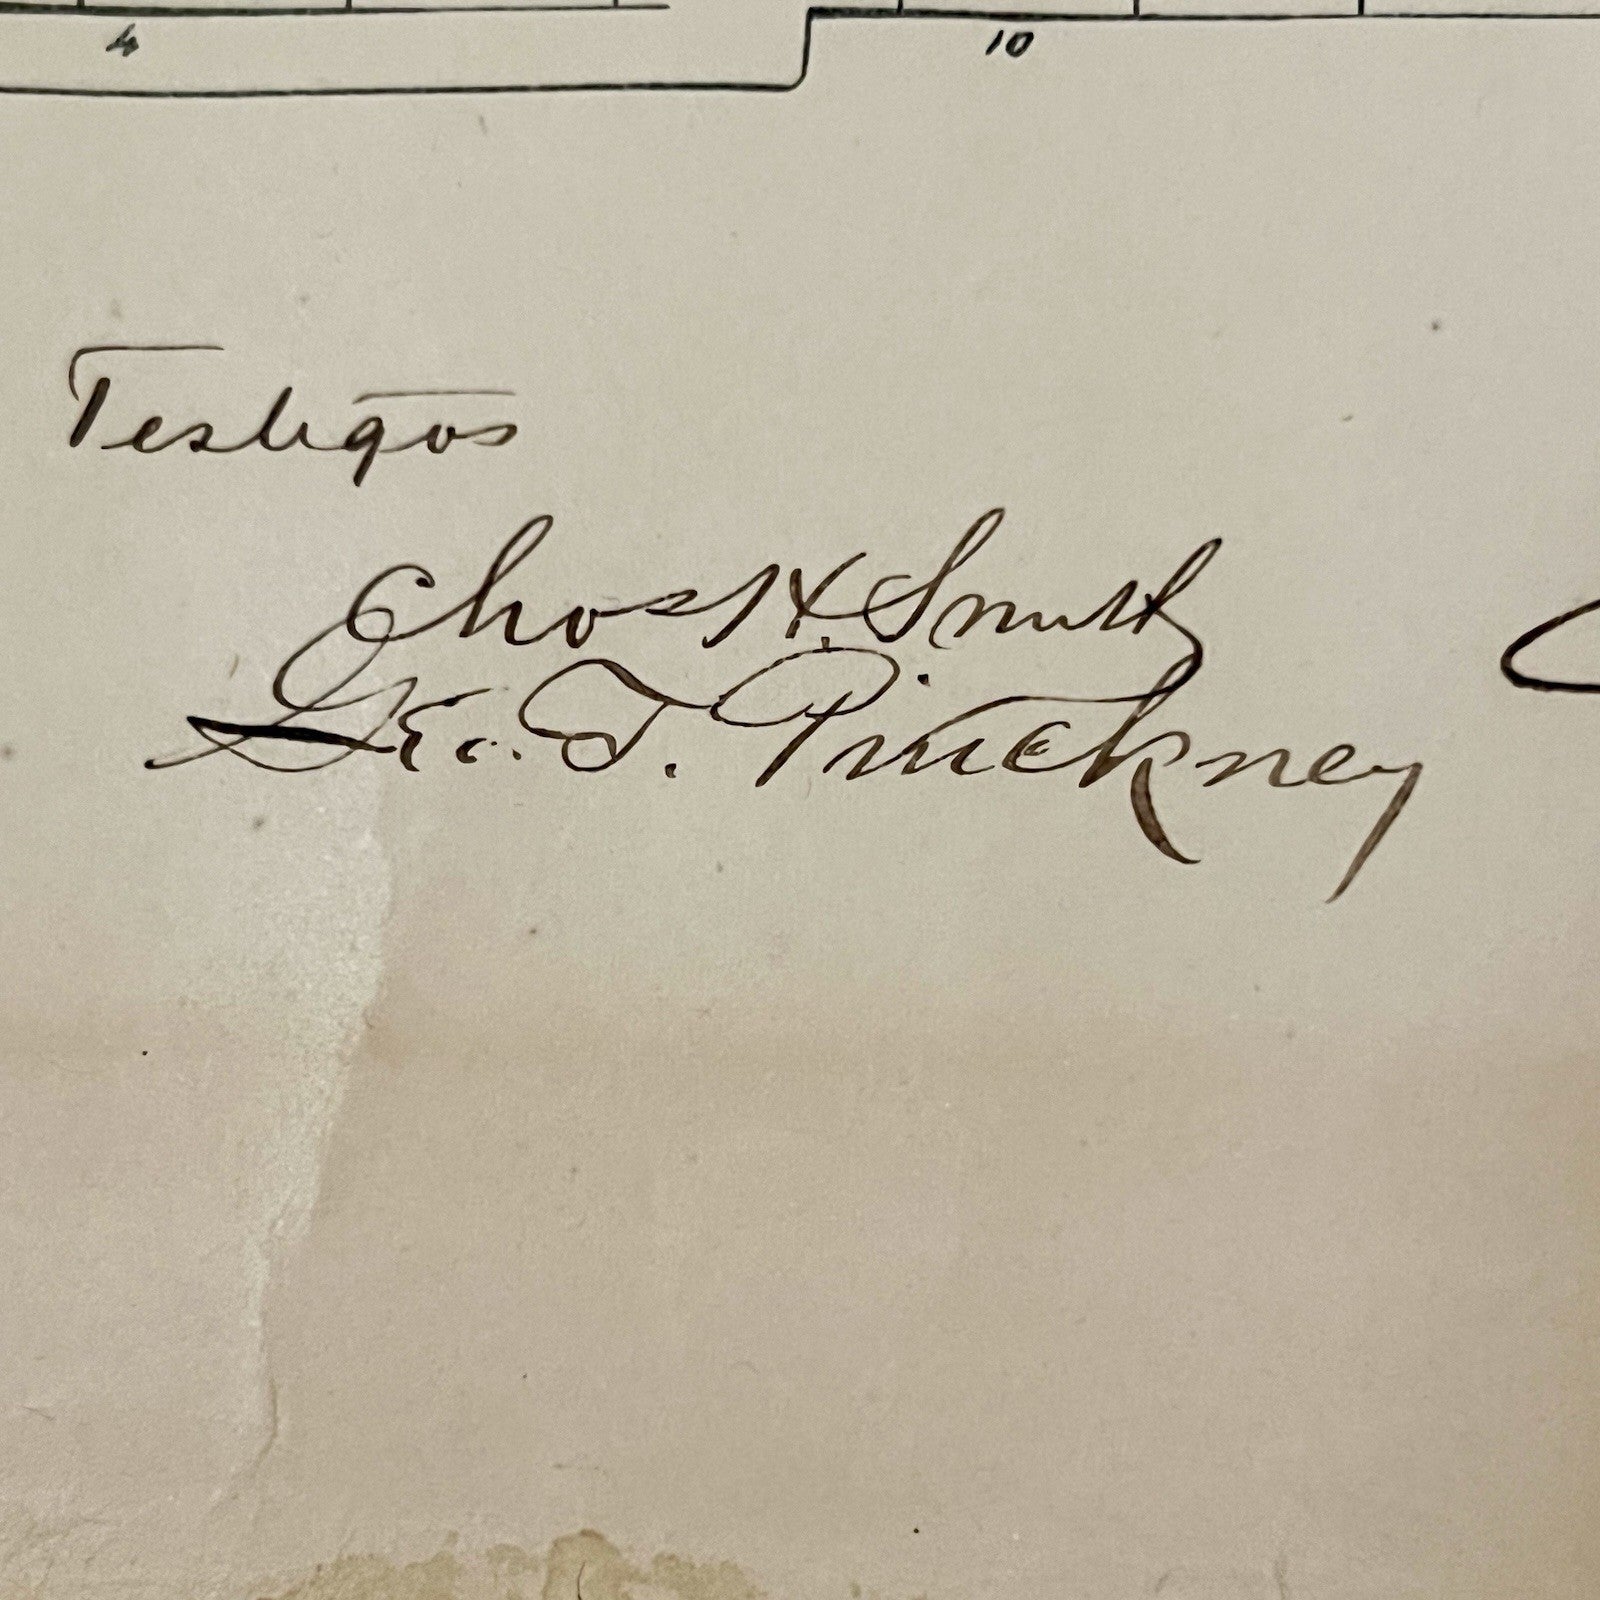 4 10
Testigos
Chas H. Smith
Geo. T. Pinckney